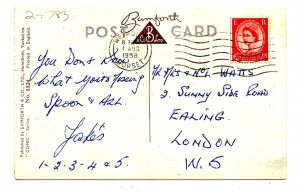 2+783
Bamforth
POST CARD
8
1 AUG
1958
DORSET
E R
You Don't Know
What You're Missing
Spoon & All.
Jake's
1-2-3-4 & 5
Mr & Mrs WATTS
2, Sunny Side Road
EALING.
LONDON
W. 5
Published by BAMFORTH & CO., LTD., Holmfirth, Yorkshire.
"COMIC" Series
No.
Printed in England.